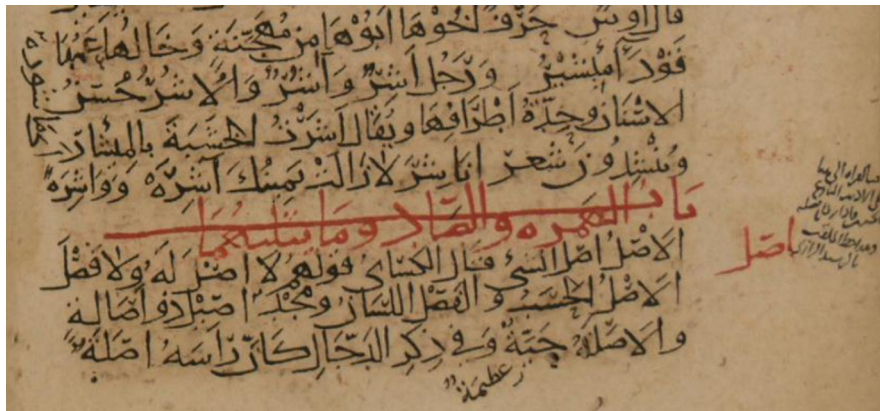 قال اوس حَرْفٌ اخوها ابوها من مُهَجَّنَةٍ وَخَالُهَا عَمُّهَا
قَوْدَآءُ مِئْشِيرُ وَرَجُل اَشِرٌ وَاَشُرٌ وَالاُشُرُ حُسْنُ
الاسْنَانِ وَحِدَّةُ اَطْرَافِهَا وَيُقَال اَشَرْتُ الخَشَبَةَ بالمئشار
وَيُنْشِدُونَ شعر اَنَاشِرَ لا زَالَتْ يَمِينُكَ آشِرَهْ وَوَاشِرَه
باب الهمزه والصّاد وما يثلثهما
اصل
الاَصْلُ اَصْل الشئ قال الكسَائى قولهم لا اصْلَ لَهُ ولا فَصْلَ
الاَصْلُ الحَسَبُ والفَصْل اللسَانُ ومَجْدٌ اَصِيْل ذو اَصَالة
والاَصَلَةُ حَيَّةٌ وَفي ذِكْرِ الدَجَّالِ كَانَ رَاسَهُ اَصَلَةٌ
عظيمة